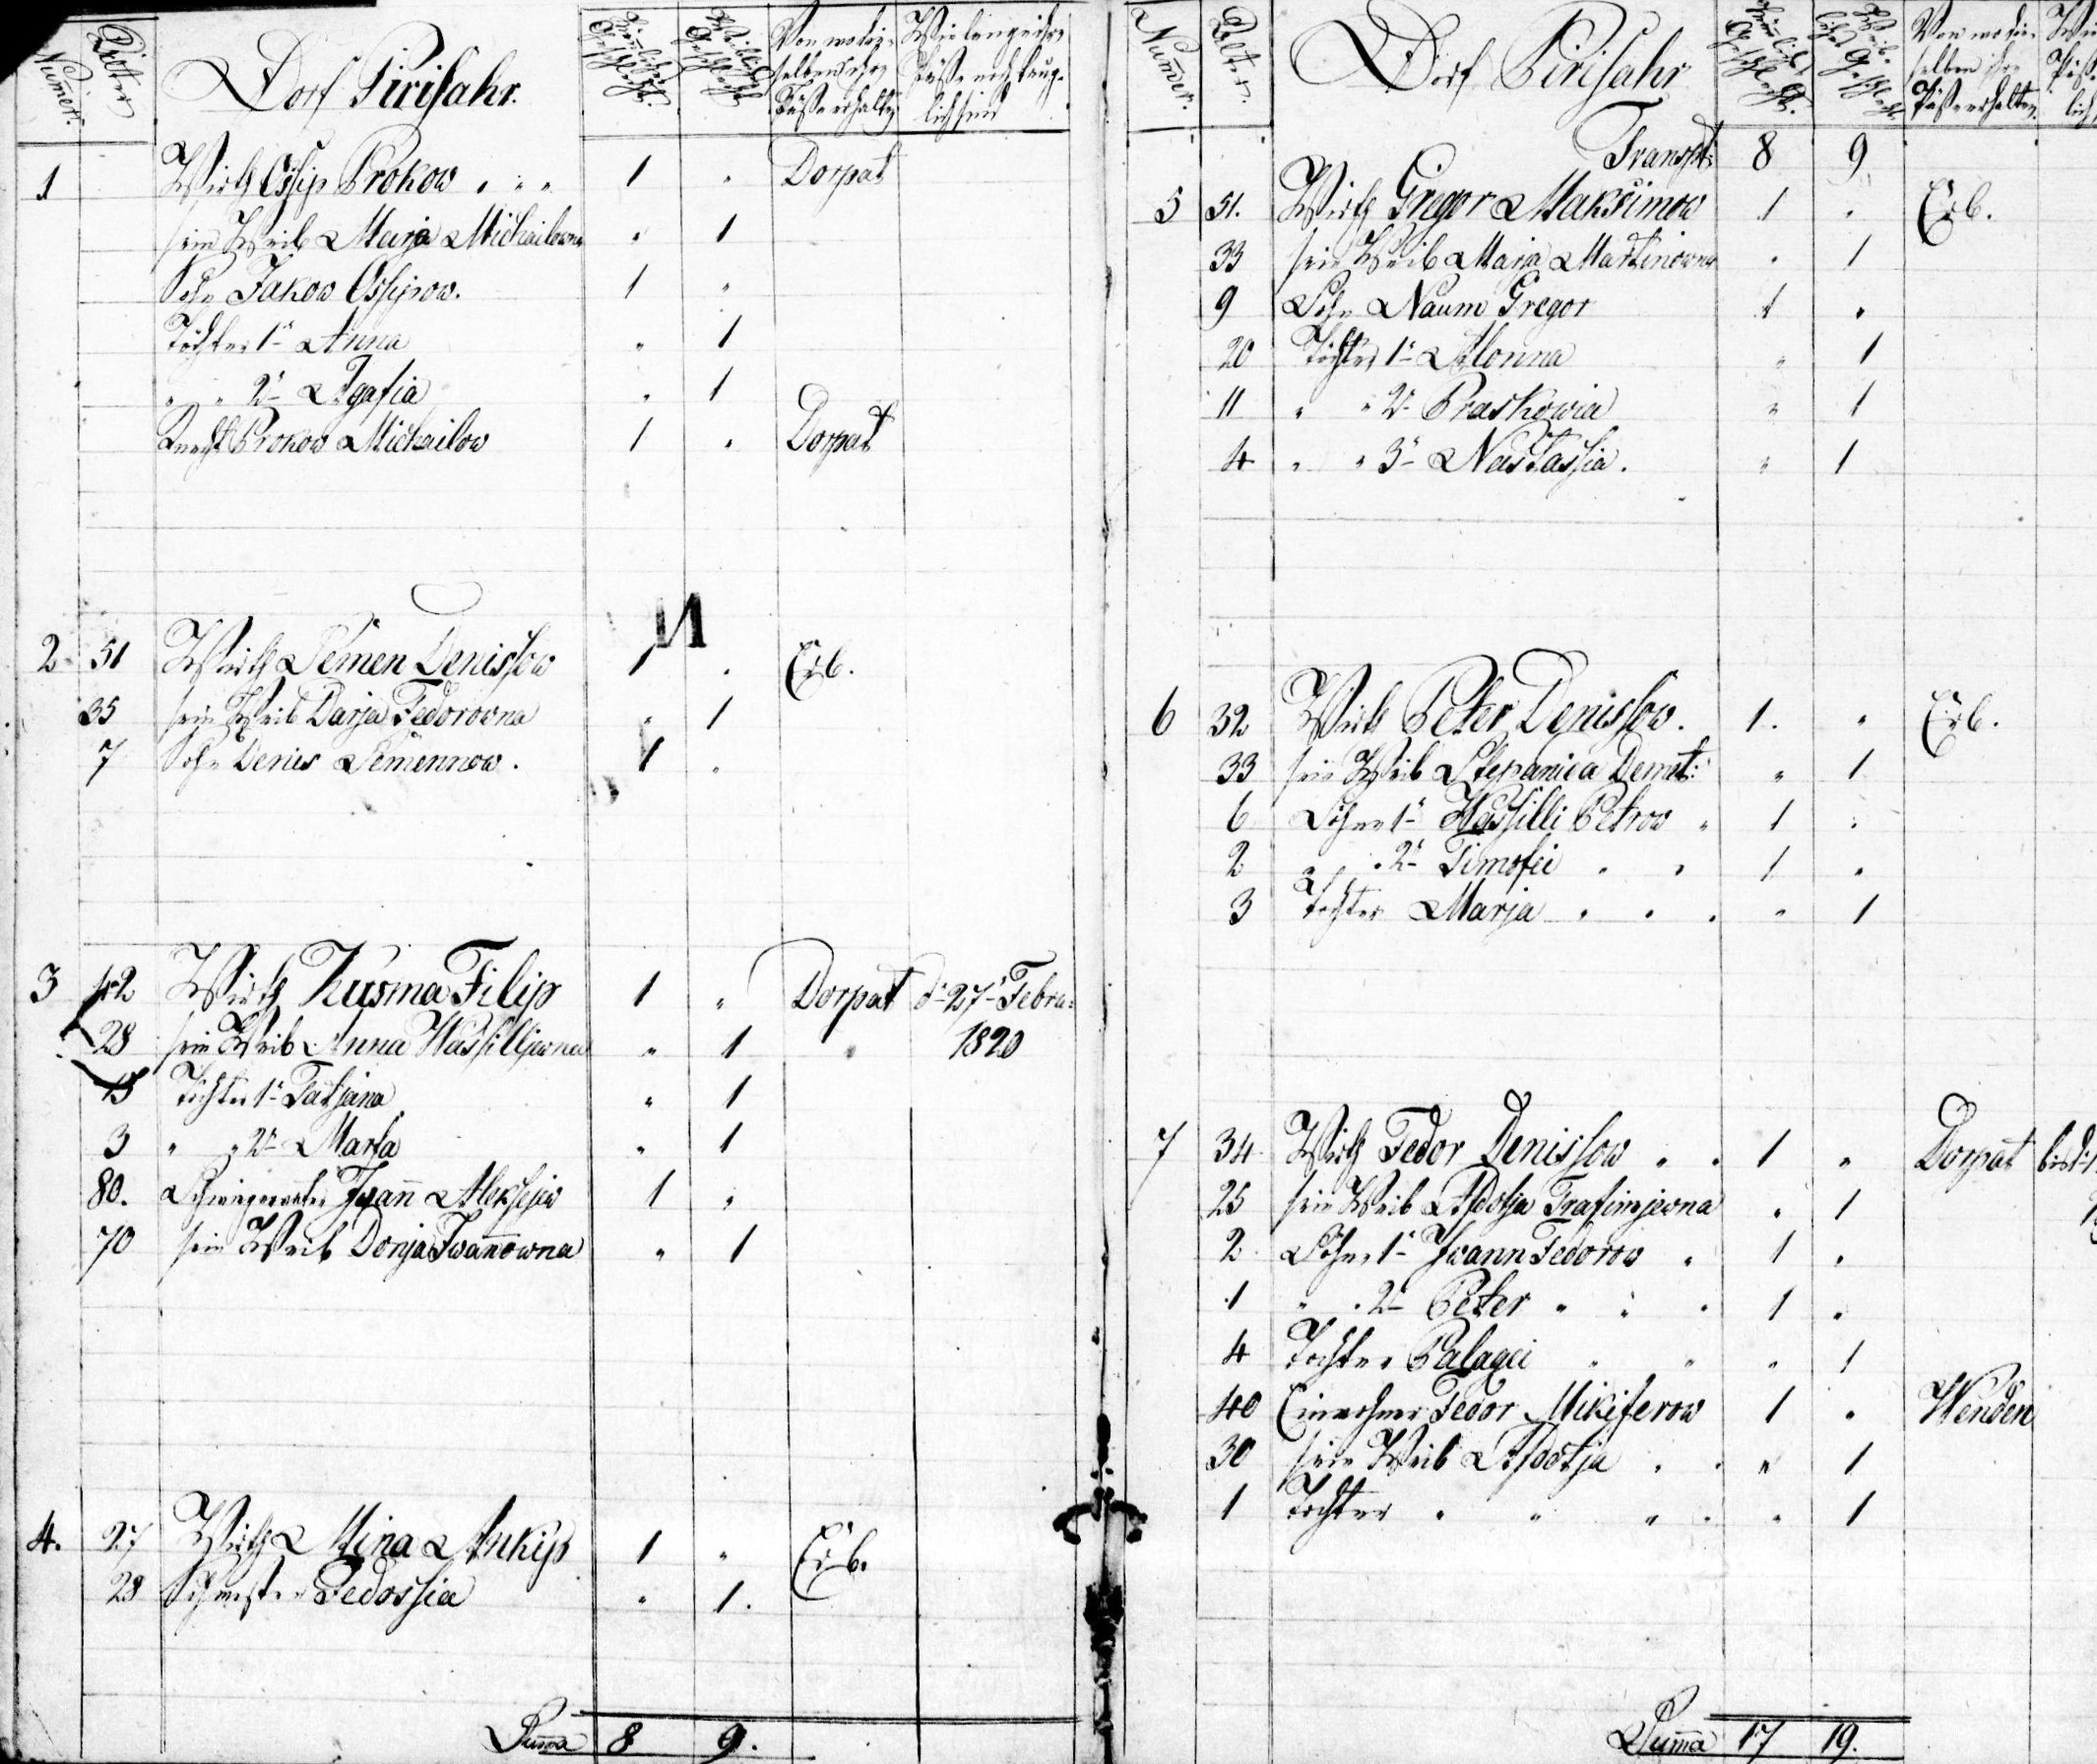 Numer.
Alter
Dorf Pirisahr.
Männliches Geschlecht.
Weibliches Geschlecht
Von wo dieselben ihre Päße erhalten
Wie lange ihre Päße noch tauglich sind
1 Wirth Ossip Prokow " " " 1 " Dorpat
sein Weib Marja Michailowna " 1
Sohn Jakow Ossipow. 1 "
Töchter 1- Anna " 1
" " 2- Agafia " 1
Knecht Prokow Michailow 1 " Dorpat
2 51 Wirth Semen Denissow 1 " Erb.
35 sein Weib Darja Fedorowna " 1
7 Sohn Denis Semennow. 1 "
3 42 Wirth Kusma Filip 1 " Dorpat d- 27- Febra:
28 sein Weib Anna Wassilljewna " 1 " 1820
13 Töchter 1- Tatjana " 1
3 " " 2- Marfa " 1
80. Schwiegervater Iwan̄ Aleksejew 1 "
70 sein Weib Donja Iwan̄owna " 1
4. 27 Wirth Mina Ankip 1 " Erb.
28 Schwester Fedossia " 1.
Sum̄a 8 9.
Num̄er.
Alter.
Dorf Pirisahr
Männliches Geschlecht.
Weibliches Geschlecht.
Von wo dieselben ihre Päße erhalten.
Transpt: 8 9
5 51. Wirth Gregor Maksimow 1 " Erb.
33 sein Weib Marja Martinowna " 1
9 Sohn Naum Gregor 1 "
20 Töchter 1- Alonna " 1
11 " " 2- Praskowia " 1
4 " " 3- Nastassia. " 1
6 32 Wirth Peter Denissow. 1. " Erb.
33 sein Weib Stepanica Demt: " 1
6 Söhne 1- Wassilli Petrow " 1 "
2 " " 2- Timofei " " 1 "
3 Tochter Marja " " " " 1
7 34 Wirth Fedor Denissow " " 1 " Dorpat bis d-
25 sein Weib Afdotja Trafimjewna " 1
2 Söhne 1- Iwann Fedorow " 1 "
1 " " 2- Peter " " " 1 "
4 Tochter Palagei " " " 1
40 Einwohner Fedor Mikiferow 1 " Wenden
30 sein Weib Afdotja " " " 1
1 Tochter " " " " " 1
Sum̄a 17 19.